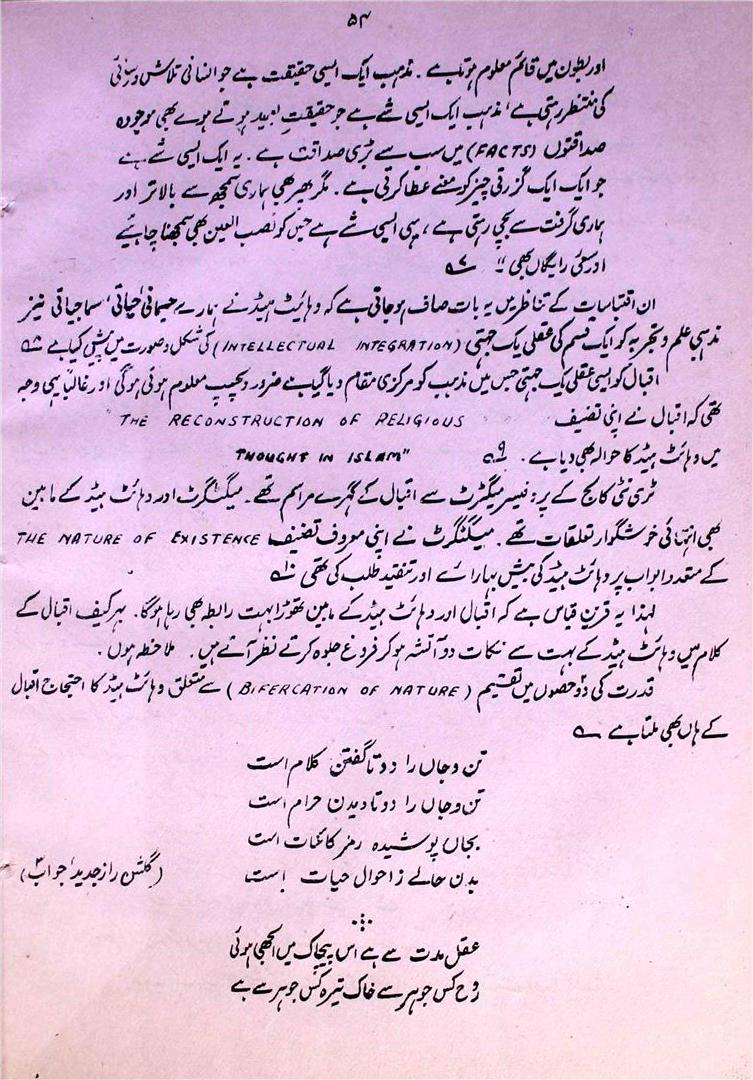 ۵۴
اور بطون میں قائم معلوم ہوتا ہے ۔ مذہب ایک ایسی حقیقت ہے جو انسانی تلاش و رسائی
کی منتظر رہتی ہے ، مذہب ایک ایسی شے ہے جو حقیقتِ بعید ہوتے ہوے بھی موجودہ
صداقتوں (FACTS) میں سب سے بڑی صداقت ہے ۔ یہ ایک ایسی شے ہے
جو ایک ایک گزرتی چیز کو معنے عطا کرتی ہے ۔ مگر پھر بھی ہماری سمجھ سے بالاتر اور
ہماری گرفت سے بچی رہتی ہے ، یہی ایسی شے ہے جس کو نصب العین بھی سمجھنا چاہئیے
اور سعئ رایگاں بھی " ۷
ان اقتباسات کے تناظر میں یہ بات صاف ہو جاتی ہے کہ وہائیٹ ہیڈ نے ہمارے جسمانی احیاتی ، سماجیاتی نیز
مذہبی علم و تجربہ کو ایک قسم کی عقلی یک جہتی (INTELLECTUAL INTEGRATION) کی شکل و صورت میں پیش کیا ہے ۸
اقبال کو ایسی عقلی یک جہتی جس میں مذہب کو مرکزی مقام دیا گیا ہے ضرور دلچسپ معلوم ہوئی ہوگی اور غالباً یہی وجہ
تھی کہ اقبال نے اپنی تصنیف THE RECONSTRUCTION OF RELIGIOUS
THOUGHT IN ISLAM" میں وہائٹ ہیڈ کا حوالہ بھی دیا ہے ۔ ۹
ٹری نٹی کالج کے پروفیسر میگٹرٹ سے اقبال کے گہرے مراسم تھے ۔ میگٹگرٹ اور وہائٹ ہیڈ کے مابین
بھی انتہائی خوشگوار تعلقات تھے ۔ میگٹگرٹ نے اپنی معروف تصنیف THE NATURE OF EXISTENCE
کے متعدد ابواب پر وہائٹ ہیڈ کی بیش بہا رائے اور تنقید طلب کی تھی ۱۰
لہذا یہ قرینِ قیاس ہے کہ اقبال اور وہائٹ ہیڈ کے مابین تھوڑا بہت رابطہ بھی رہا ہوگا ۔ بہر کیف اقبال کے
کلام میں وہائٹ ہیڈ کے بہت سے نکات دو آتشہ ہو کر فروغ جلوہ کرتے نظر آتے ہیں ۔ ملاحظہ ہوں ۔
قدرت کی دو حصوں میں تقسیم (BIFERCATION OF NATURE) سے متعلق وہائٹ ہیڈ کا احتجاج اقبال
کے ہاں بھی ملتا ہے
تن و جاں را دو تا گفتن کلام است
تن و جاں را دو تا دیدن حرام است
بجاں پوشیدہ رمز کائنات است
بدن حالے ز احوال حیات است (گلشن راز جدید ، جواب ۳)
عقل مدت سے ہے اس پیچاک میں الجھی ہوئی
روح کس جوہر سے خاک تیرہ کس جوہر سے ہے